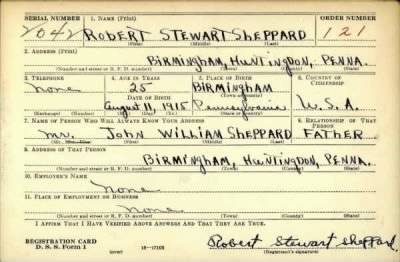 SERIAL NUMBER 1. NAME (Print) ORDER NUMBER
2042 ROBERT STEWART SHEPPARD 121
(First) (Middle) (Last)
2. ADDRESS (Print)
BIRMINGHAM, HUNTINGDON, PENNA.
(Number and street or R. F. D. number) (Town) (County) (State)
3. TELEPHONE 4. AGE IN YEARS 5. PLACE OF BIRTH 6. COUNTRY OF CITIZENSHIP
None 25 BIRMINGHAM
DATE OF BIRTH (Town or county)
August 11, 1915 Pennsylvania U.S.A.
(Exchange) (Number) (Mo.) (Day) (Yr.) (State or country)
7. NAME OF PERSON WHO WILL ALWAYS KNOW YOUR ADDRESS 8. RELATIONSHIP OF THAT PERSON
Mr. JOHN WILLIAM SHEPPARD FATHER
(Mr., Mrs., Miss) (First) (Middle) (Last)
9. ADDRESS OF THAT PERSON
BIRMINGHAM, HUNTINGDON, PENNA.
(Number and street or R. F. D. number) (Town) (County) (State)
10. EMPLOYER'S NAME
None
11. PLACE OF EMPLOYMENT OR BUSINESS
None
(Number and street or R. F. D. number) (Town) (County) (State)
I AFFIRM THAT I HAVE VERIFIED ABOVE ANSWERS AND THAT THEY ARE TRUE.
REGISTRATION CARD
D. S. S. Form 1 (over) 16—17105 Robert Stewart Sheppard
(Registrant's signature)